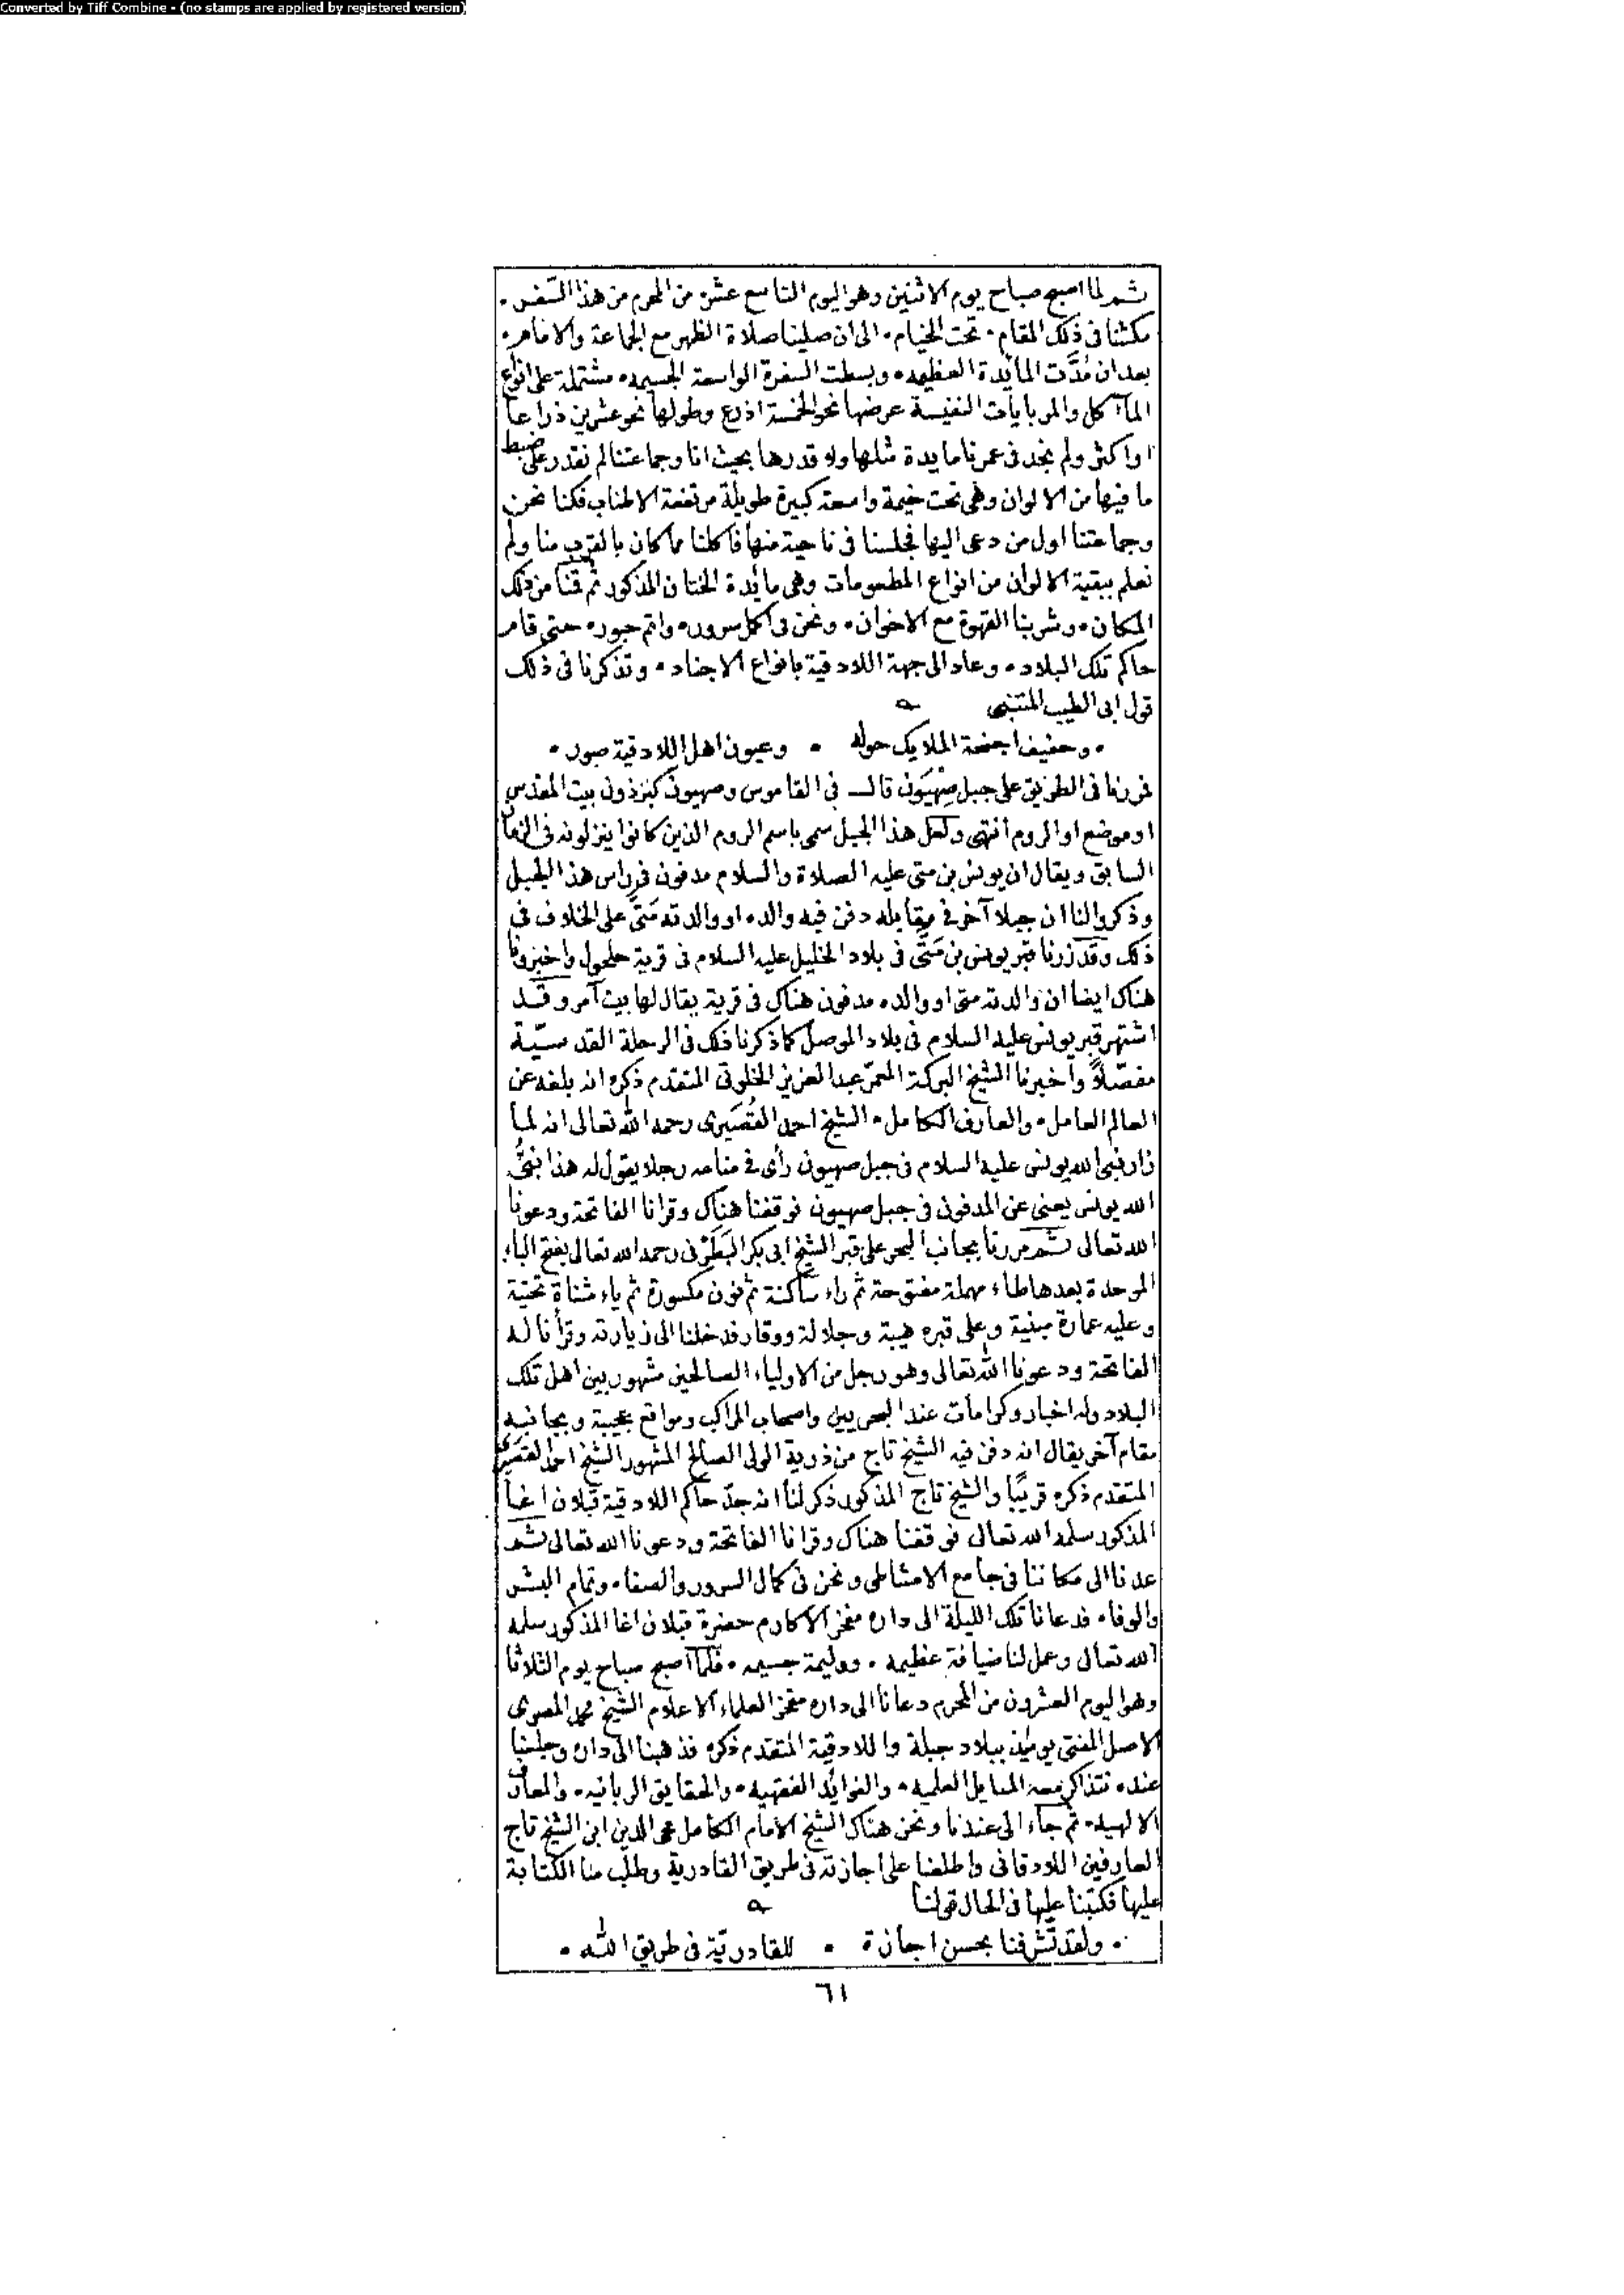 Converted by Tiff Combine - (no stamps are applied by registered version)
ثم لما اصبح صباح يوم الاثنين وهو اليوم التاسع عشر من المحرم من هذا السفر •
مكثنا فى ذلك المقام • تحت الخيام • الى ان صلينا صلاة الظهر مع الجماعة والامام •
بعد ان مُدَّت المائدة العظيمه • وبسطت السفرة الواسعة الجسيمه • مشتملة على انواع
المآكل والمربايات النفيسة عرضها نحو الخمسة اذرع وطولها نحو عشرين ذراعا
او اكثر ولم نجد فى عمرنا مايدة مثلها ولا قدرها بحيث انا وجماعتنا لم نقدر على ضبط
ما فيها من الالوان وهى تحت خيمة واسعة كبيرة طويلة مرتفعة الاطناب فكنا نحن
وجماعتنا اول من دعى اليها فجلسنا فى ناحية منها فاكلنا مما كان بالقرب منا ولم
نعلم ببقية الالوان من انواع المطعومات وهى مائدة الختان المذكور ثم قمنا من ذلك
المكان • وشربنا القهوة مع الاخوان • ونحن فى اكمل سرور • واتم حبور • حتى قام
حاكم تلك البلاد • وعاد الى جهة اللادقية بانواع الاجناد • وتذكرنا فى ذلك
قول ابى الطيب المتنبى
• وحفيف اجنحة الملايك حوله • وعيون اهل اللادقية صور •
فمررنا فى الطريق على جبل صِهْيَون قال فى القاموس وصهيون كبرذون بيت المقدس
او موضع او الروم انتهى ولعل هذا الجبل سمى باسم الروم الذين كانوا ينزلونه فى الزمان
السابق ويقال ان يونس بن متى عليه الصلاة والسلام مدفون فى راس هذا الجبل
وذكروا لنا ان جبلا آخر فى مقابله دفن فيه والده او والدته مَتَّى على الخلاف فى
ذلك وقد زرنا قبر يونس بن مَتَّى فى بلاد الخليل عليه السلام فى قرية حلحول واخبرونا
هناك ايضا ان والدته متى او والده مدفون هناك فى قرية يقال لها بيت آمر وقد
اشتهر قبر يونس عليه السلام فى بلاد الموصل كما ذكرنا ذلك فى الرحلة القدسيّة
مفصّلاً واخبرنا الشيخ البركة المعمّر عبد العزيز الخلوتى المتقدم ذكره انه بلغه عن
العالم العامل • والعارف الكامل • الشيخ احمد القُصَيرى رحمه الله تعالى انه لما
زار نبى الله يونس عليه السلام فى جبل صهيون رأى فى منامه رجلا يقول له هذا نبىُّ
الله يونس يعنى عن المدفون فى جبل صهيون فوقفنا هناك وقرانا الفاتحة ودعونا
الله تعالى ثم مررنا بجانب البحر على قبر الشيخ ابى بكر البَطَرْنى رحمه الله تعالى بفتح الباء
الموحدة بعدها طاء مهملة مفتوحة ثم راء ساكنة ثم نون مكسورة ثم ياء مثناة تحتية
وعليه عمارة مبنية وعلى قبره هيبة وجلالة ووقار فدخلنا الى زيارته وقرأنا له
الفاتحة ودعونا الله تعالى وهو رجل من الاولياء الصالحين مشهور بين اهل تلك
البلاد وله اخبار وكرامات عند البحريين واصحاب المراكب ومواقع عجيبة وبجانبه
مقام آخر يقال انه دفن فيه الشيخ تاج من ذرية الولى الصالح المشهور الشيخ احمد القصيرى
المتقدم ذكره قريبًا والشيخ تاج المذكور ذكر لنا انه جدّ حاكم اللادقية قبلان اغا
المذكور سلمه الله تعالى فوقفنا هناك وقرانا الفاتحة ودعونا الله تعالى ثم
عدنا الى مكاننا فى جامع الامشاطى ونحن فى كمال السرور والصفاء وتمام البشر
والوفاء فدعانا تلك الليلة الى داره مفخر الاكارم حضرة قبلان اغا المذكور سلمه
الله تعالى وعمل لنا ضيافة عظيمه • ووليمة جسيمه • فلما اصبح صباح يوم الثلاثا
وهو اليوم العشرون من المحرم دعانا الى داره مفخر العلماء الاعلام الشيخ محمد المصرى
الاصل المفتى يومئذ ببلاد جبلة واللادقية المتقدم ذكره فذهبنا الى داره وجلسنا
عنده نتذاكر معه المسايل العلميه • والفوائد الفقهيه • والحقايق الربانيه • والمعارف
الالهيه • ثم جاء الى عندنا ونحن هناك الشيخ الامام الكامل محى الدين ابن الشيخ تاج
العارفين اللادقانى واطلعنا على اجازته فى طريق القادرية وطلب منا الكتابة
عليها فكتبنا عليها فى الحال قولنا
• ولقد تشرفنا بحسن اجازة • للقادريّة فى طريق الله •
٦١